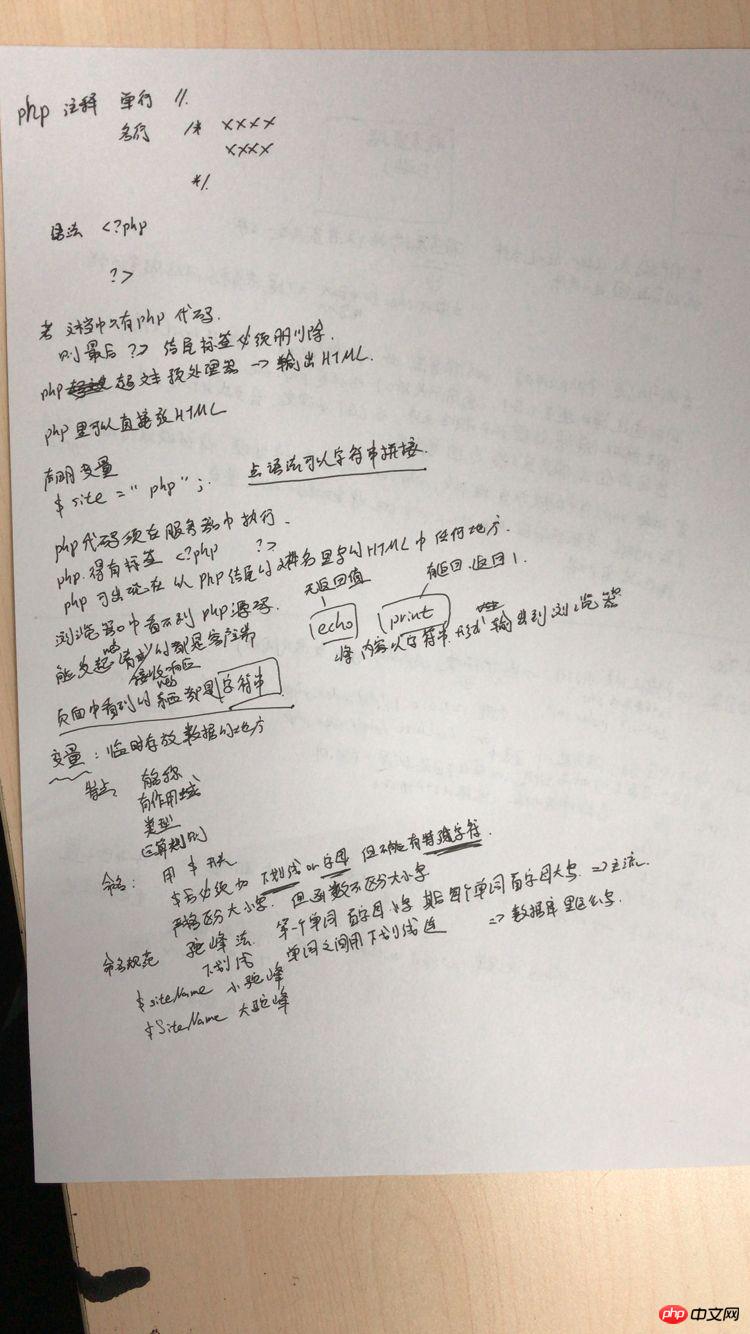 php 注释 单行 //.
多行 /* xxxx
xxxx
*/.
语法 <?php
?>
若文档中只有php代码.
则最后 ?> 结尾标签必须删除.
php 超文本预处理器 -> 输出HTML.
php里可以直接放HTML
声明变量
$ site = " php " ;
点语法可以字符串拼接.
php代码须在服务器中执行.
php 得有标签 <?php ?>
php 可出现在以PHP结尾的文档名里字的HTML中任何地方.
浏览器中看不到php源码.
无返回值
echo
有返回.返回1.
print
将内容以字符串形式输出到浏览器
能发起web请求的都是客户端
接收响应
页面中看到的东西都是字符串
变量: 临时存放数据的地方
特点 有名称
有作用域
类型
运算规则
命名: 用 $ 开头
$后必须为 下划线 or 字母 但不能有特殊字符.
严格区分大小写. 但函数不区分大小写
命名规范 驼峰法. 第一个单词首字母小写 其后每个单词首字母大写. => 主流.
下划线 单词之间用下划线连 => 数据库里
$siteName 小驼峰
$SiteName 大驼峰
php 中文网